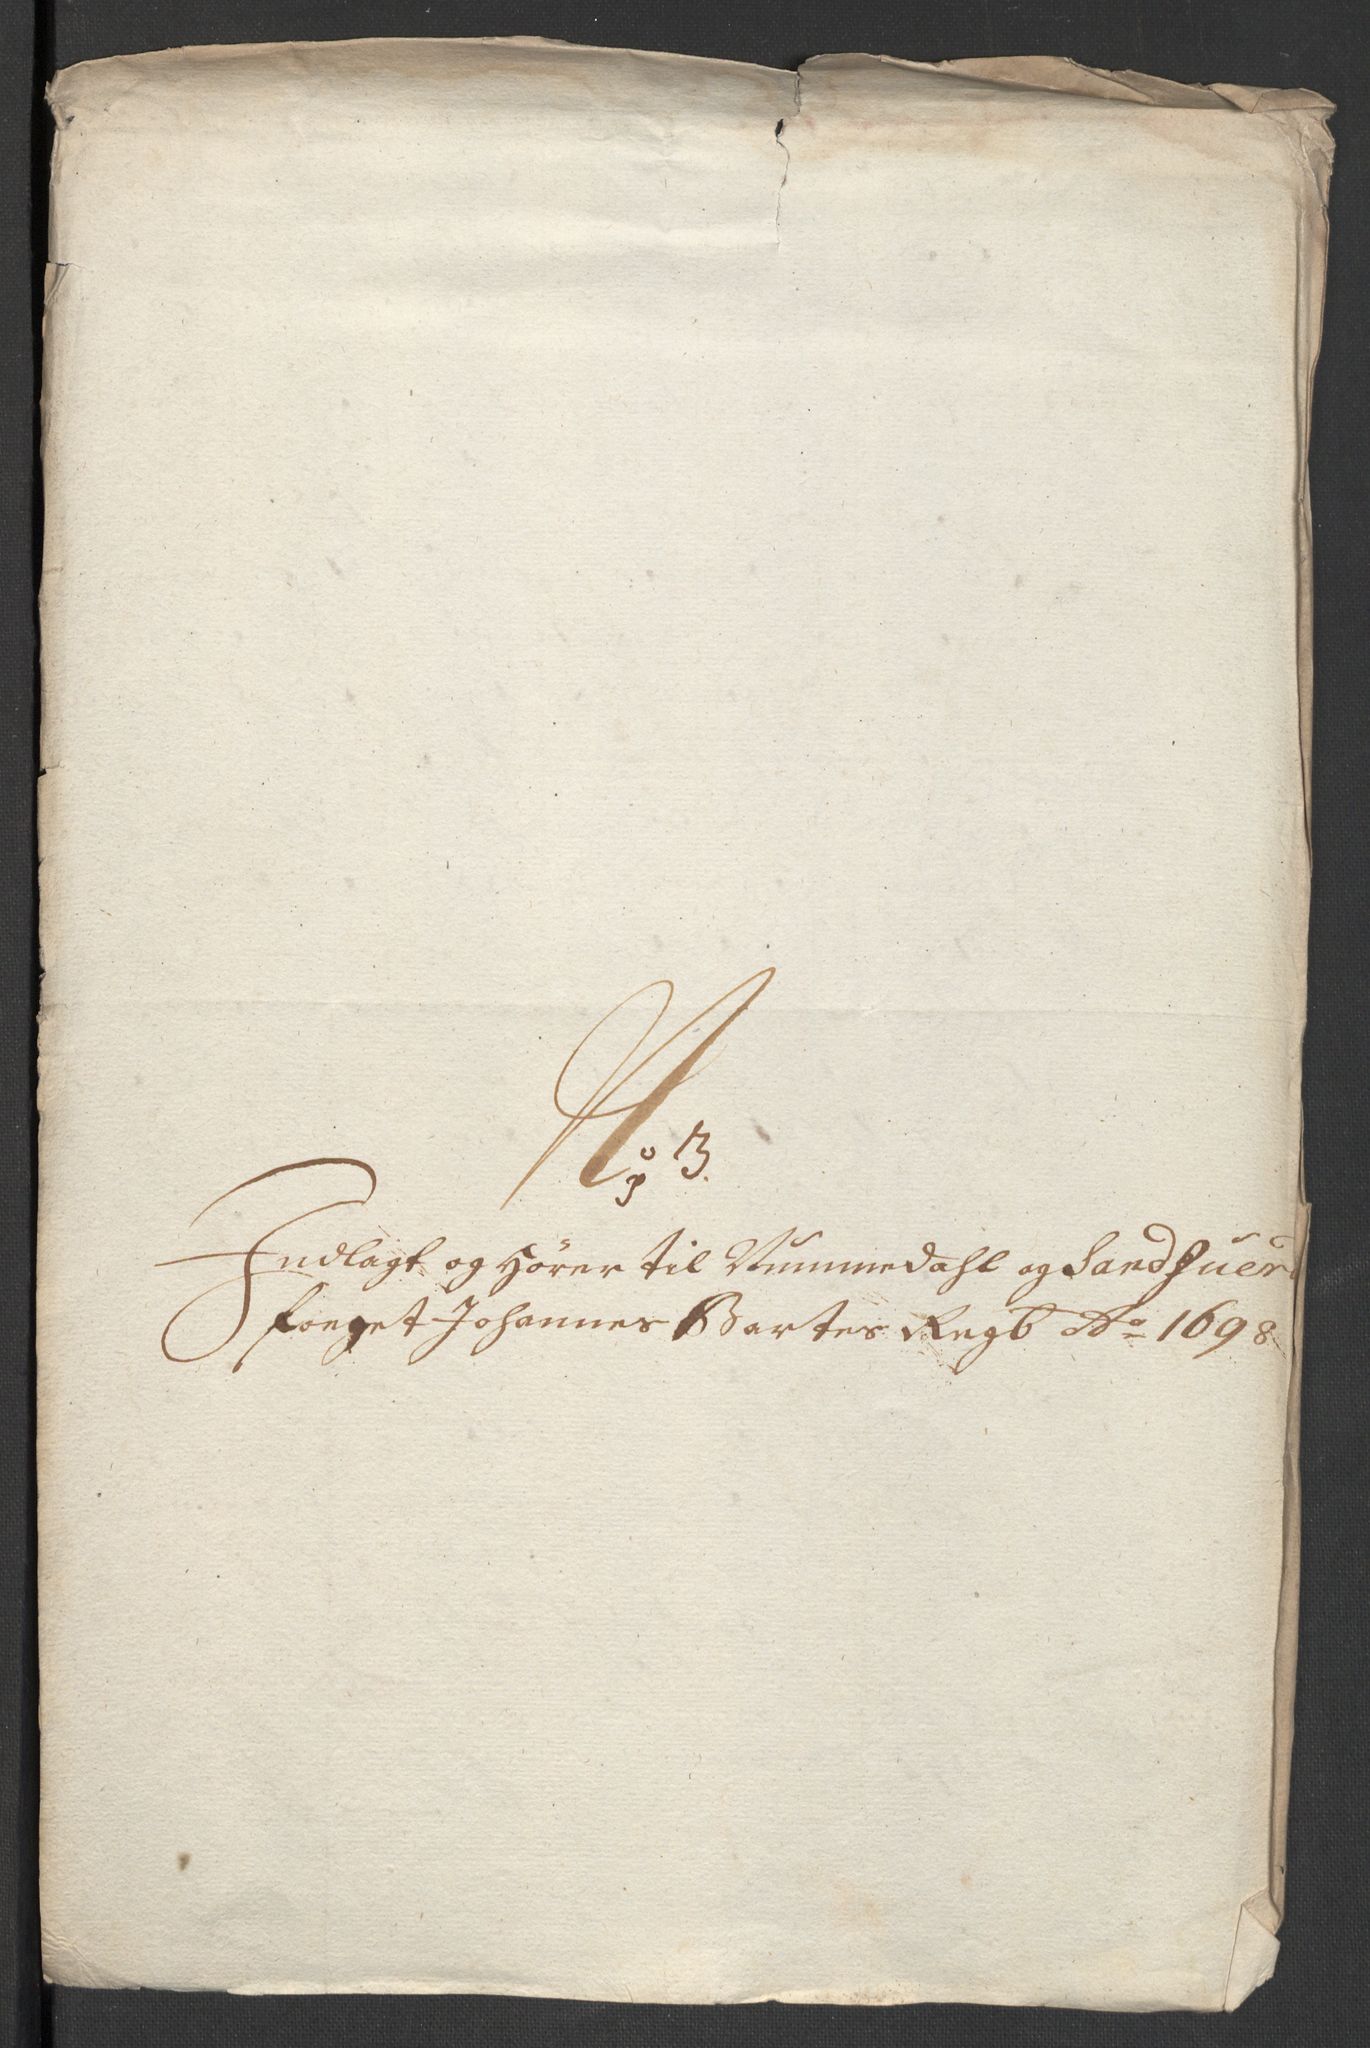 No 3.
Indlagt og hörer til Nummedahl og Sandsuerd
foeget Johannes Bartes Regb Ao 1698